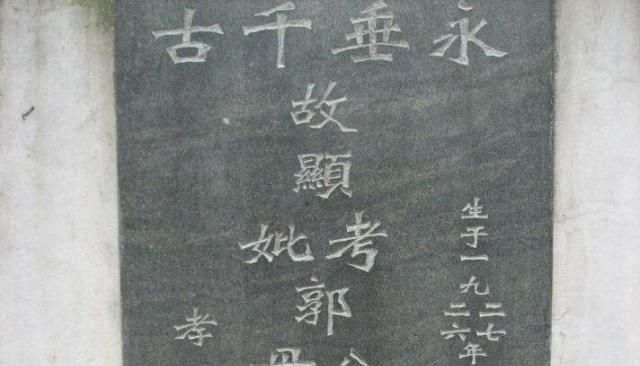 永垂千古
生于一九二七二六年
故顯考妣郭公母
孝